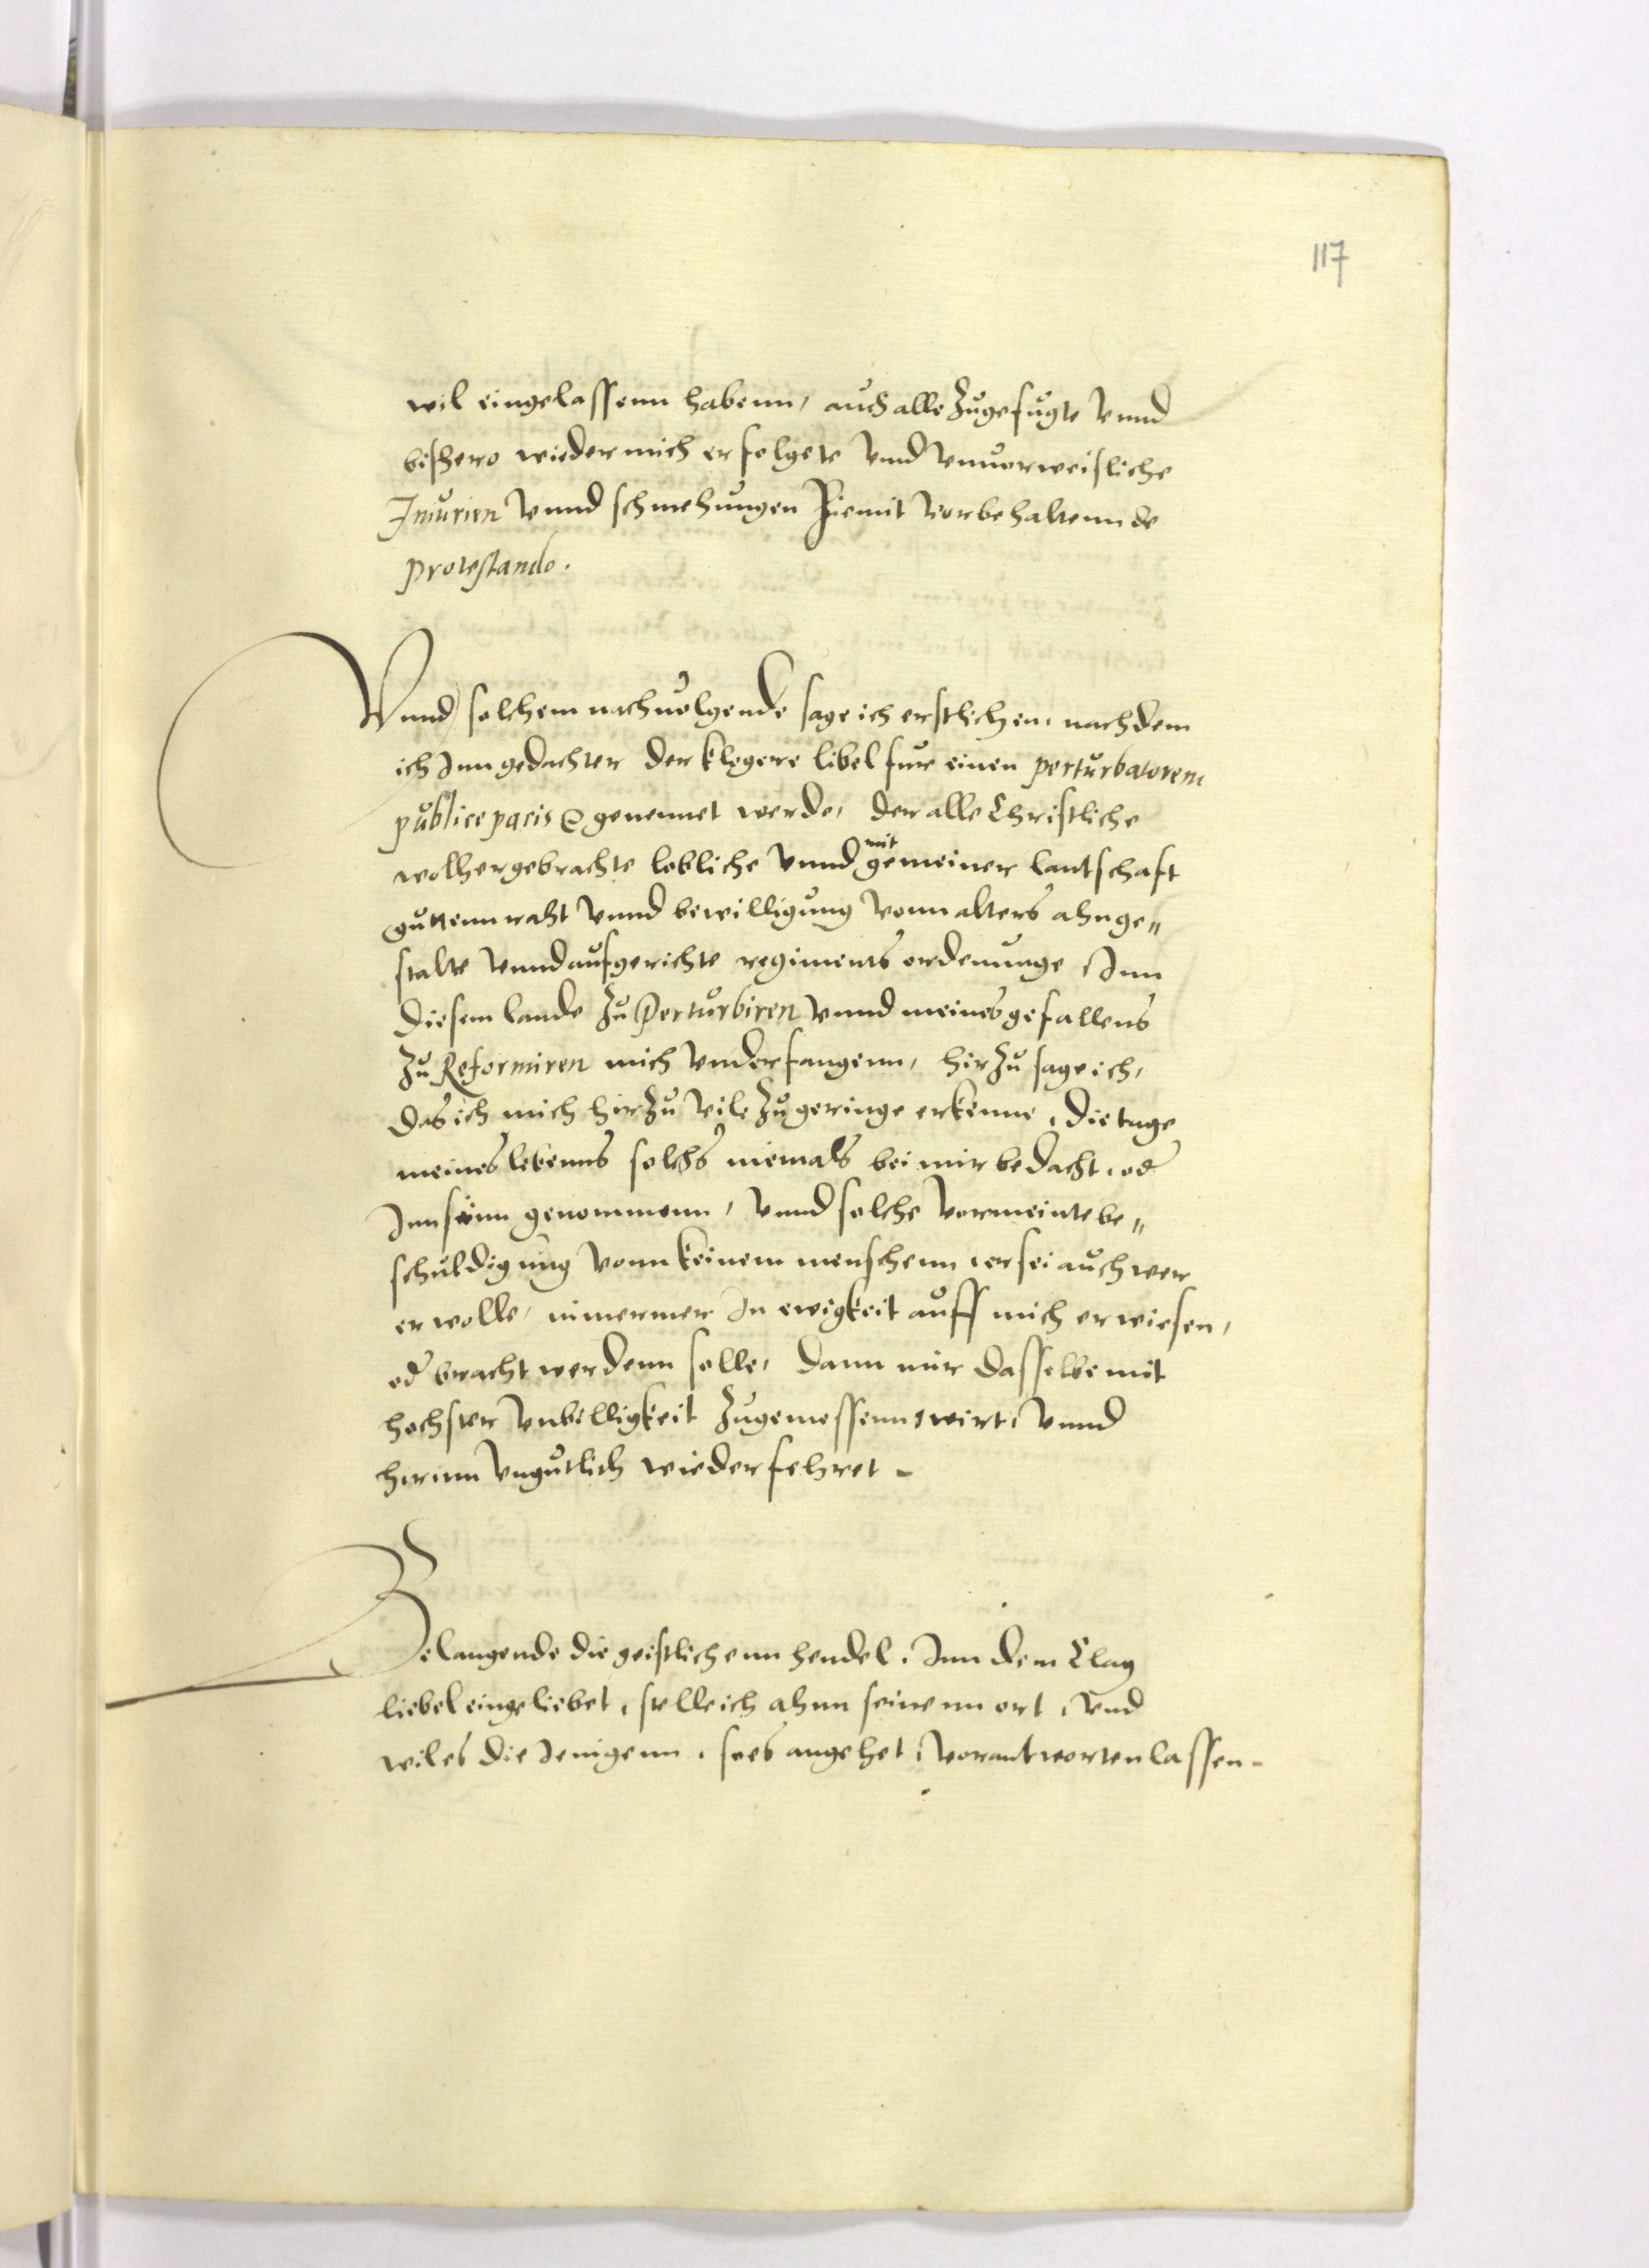 117
wil eingelassenn habenn, auch alle Zugefugte vnnd
bishero wieder mich erfolgete vnd vnuorweisliche
Iniurien vnnd schmehungen hiemit vorbehaltennde
protestando.
Vnnd solchem nachuolgende sage ich erstlichen, nachdem
ich Inn gedachter der klegere libel fur einen perturbatorem
publice pacis &c genennet werde, der alle Christliche
wolhergebrachte lobliche vnnd mit gemeiner lantschaft
guttenn raht vnnd bewilligung vonn alters ahnge„
stalte vnnd aufgerichte regiments ordenunge Inn
diesem lande Zu Perturbiren vnnd meines gefallens
Zu Reformiren mich vnderfangenn, hirZu sage ich,
das ich mich hirZu vile Zu geringe erkenne, die tage
meines lebenns solchs niemals bei mir bedacht, od
Inn sinn genommenn, vnnd solche vormeinte be„
schuldigung vonn keinem menschenn, er sei auch wer
er wolle, nimermer In ewigkeit auff mich erwiesen,
od bracht werdenn solle, dann mir dasselbe mit
hochster vnbilligkeit Zugemessenn wirt, vnnd
hirinn vngutlich wiederfehret.
Belangende die geistlichenn hendel, Inn dem Clag
liebel eingeliebet, stelle ich ahnn seinenn ort, vnd
wil es die Jenigenn, so es angehet, vorantworten lassen.